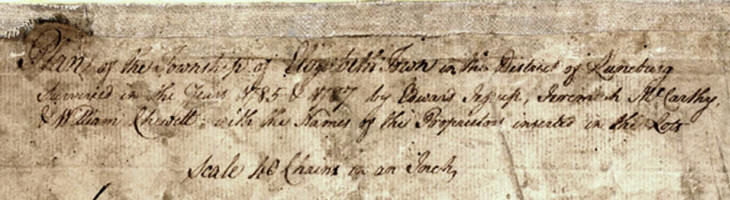 Plan of the Township of Elizabeth Town in the District of Luneburg
Surveyed in the Years 1785 & 1787 by Edward Jessup, Jeremiah McCarthy,
& William Chewett; with the Names of the Proprietors inserted in the Lots
Scale 40 Chains in an Inch,